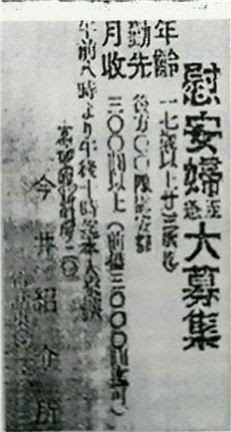 慰安婦至急大募集
年齢 一七歳以上廿三歳迄
勤先 後方〇〇隊慰安部
月収 三〇〇円以上(前借三〇〇〇円迄可)
午前八時より午後十時
今井紹介所